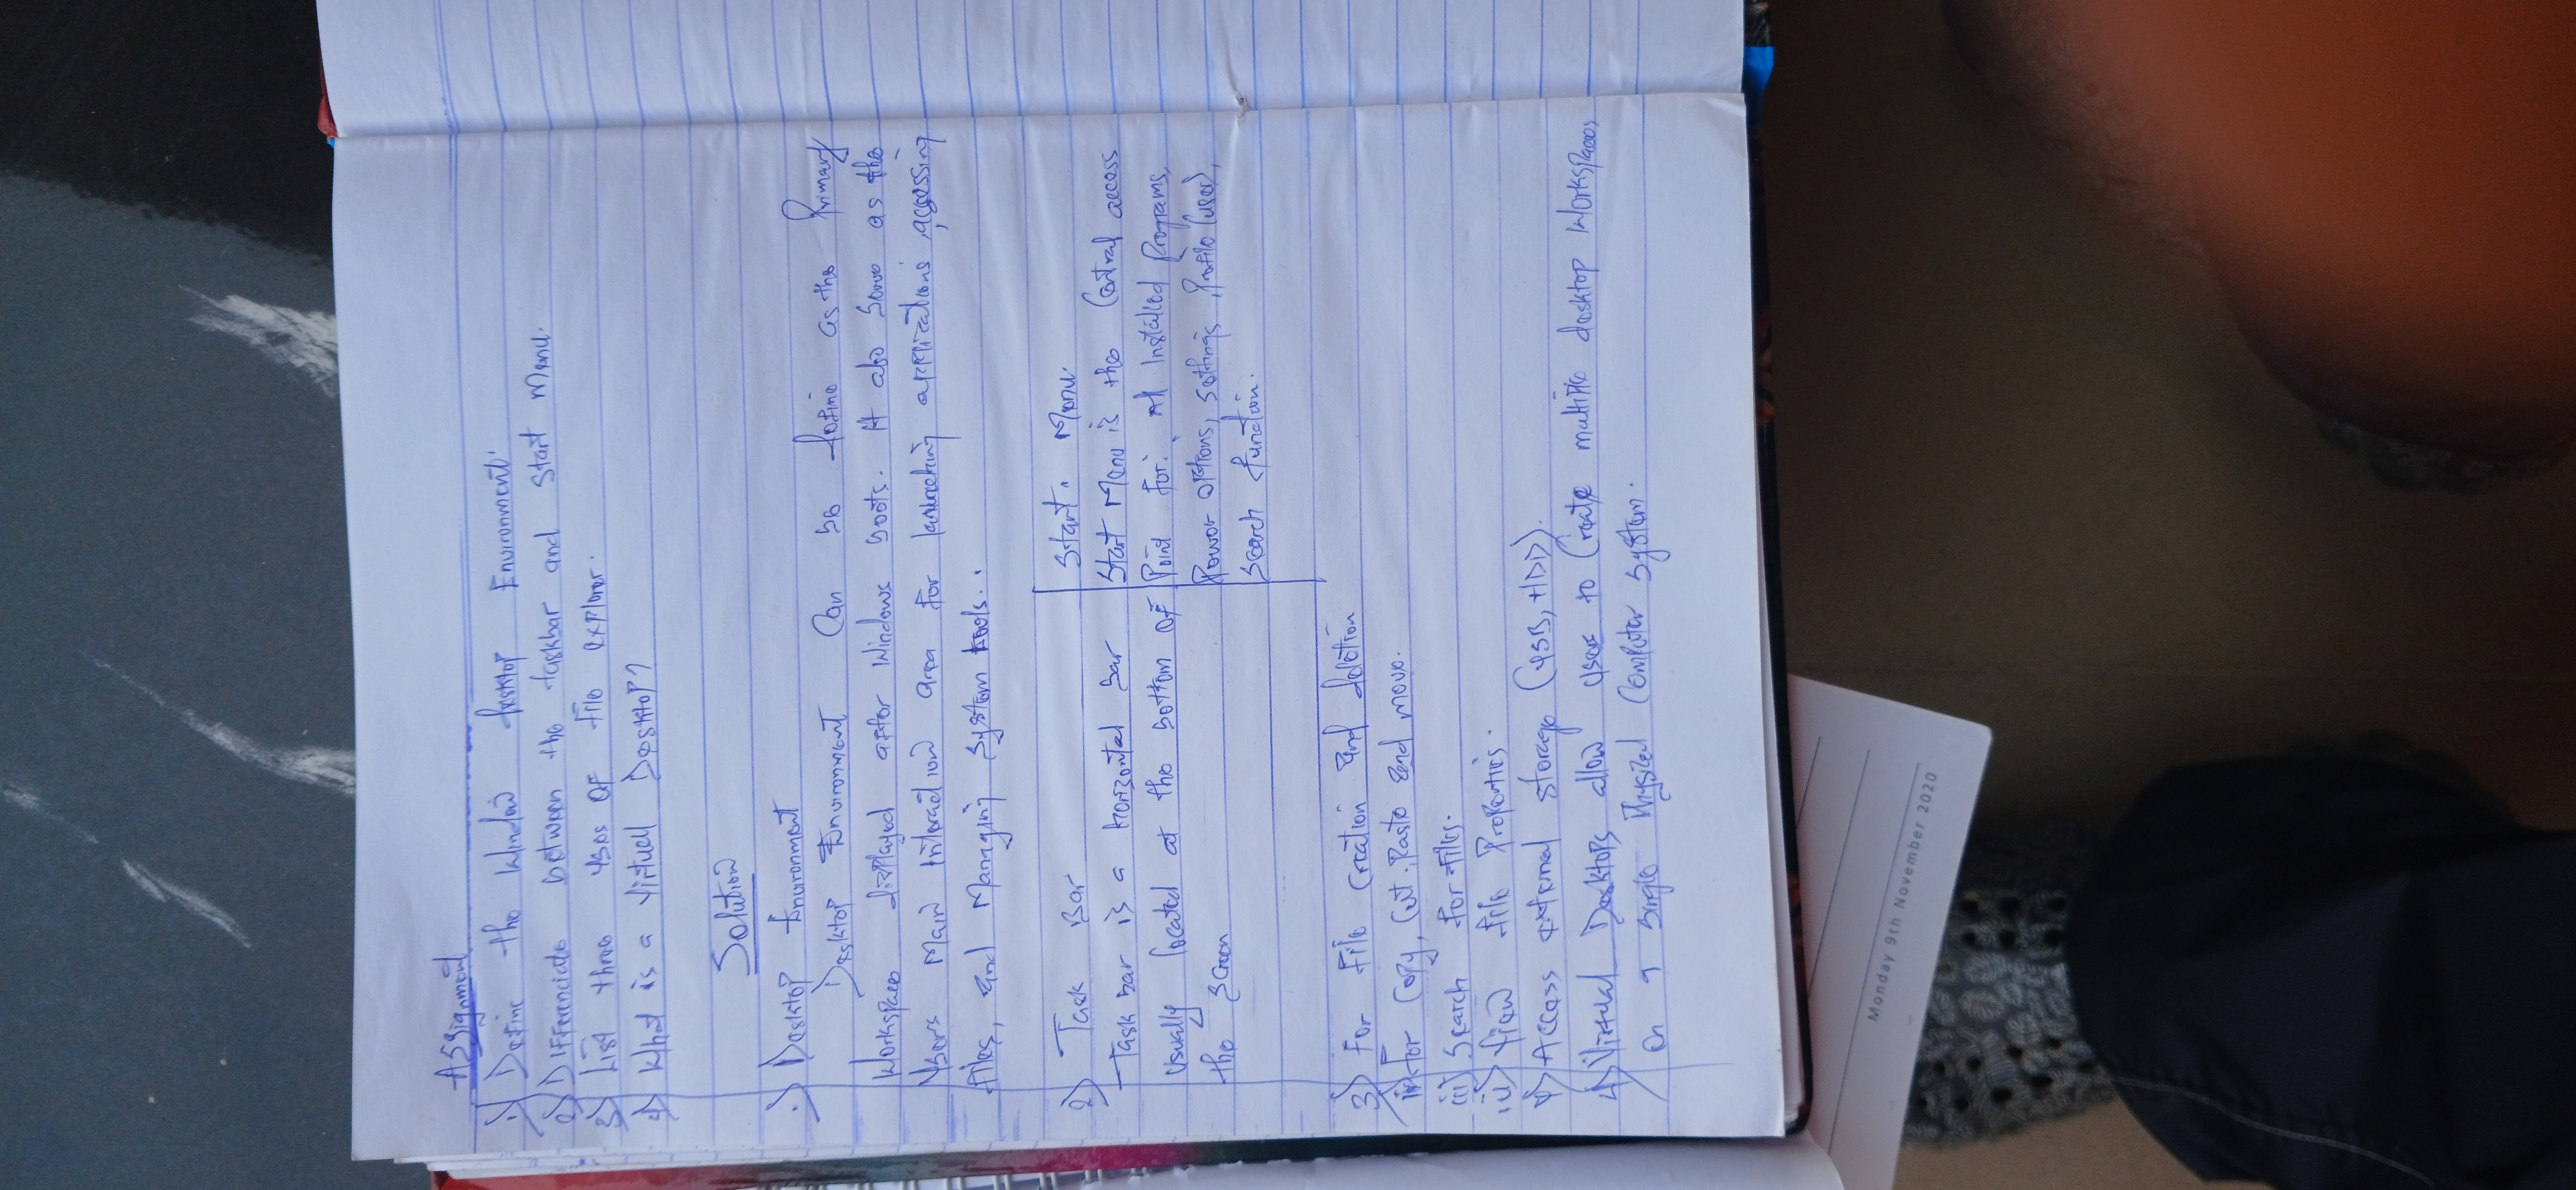 Assignment
1) Define the Window desktop Environment.
2) Differenciate between the taskbar and start Menu.
3) List three uses of file explorer.
4) What is a Virtual Desktop?
Solution
1) Desktop Environment
Desktop Environment Can be define as the Primary
Workspace displayed after Windows boots. It also Serve as the
Users Main Interaction area for launching applications, accessing
files, and Managing System tools.
2) Task Bar
Task bar is a horizontal bar
usually located at the bottom of
the Screen
Start Menu.
Start Menu is the Central access
Point for: All Installed Programs,
Power options, settings, Profile (user),
Search function.
3) For File Creation and deletion
ii) For Copy, Cut, Paste and move.
iii) Search for files.
iv) View file Properties.
v) Access external storage (USB, HDD).
4) Virtual Desktops allow user to Create multiple desktop Workspaces
On a Single Physical Computer System.
Monday 9th November 2020